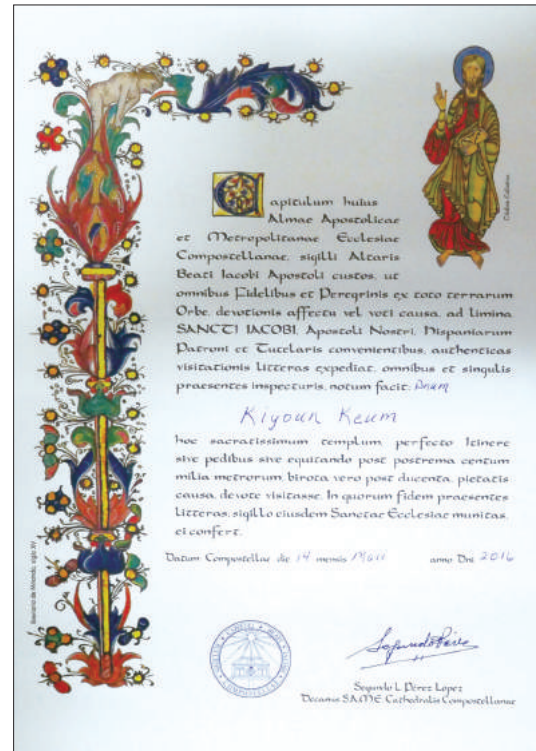 Capitulum huius
Almae Apostolicae
et Metropolitanae Ecclesiae
Compostellanae, sigilli Altaris
Beati Iacobi Apostoli custos, ut
omnibus Fidelibus et Peregrinis ex toto terrarum
Orbe, devotionis affectu vel voti causa, ad limina
SANCTI IACOBI, Apostoli Nostri, Hispaniarum
Patroni et Tutelaris convenientibus, authenticas
visitationis litteras expediat, omnibus et singulis
praesentes inspecturis, notum facit: Dnum
Kiyoun Keum
hoc sacratissimum templum, perfecto Itinere
sive pedibus sive equitando post postrema centum
milia metrorum, birota vero post ducenta, pietatis
causa, devote visitasse. In quorum fidem praesentes
litteras, sigillo eiusdem Sanctae Ecclesiae munitas,
ei confert.
Datum Compostellae die 14 mensis Maii anno Dni 2016
Segundo L. Pérez López
Decanus S.A.M.E. Cathedralis Compostellanae
Codice Calixtino